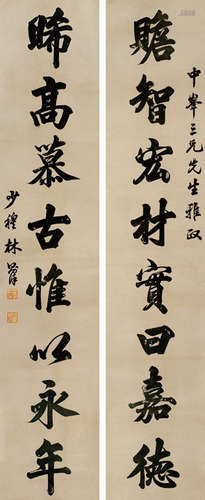 中峯三兄先生雅政
贍智宏材實曰嘉德
睎高慕古惟以永年
少穆林